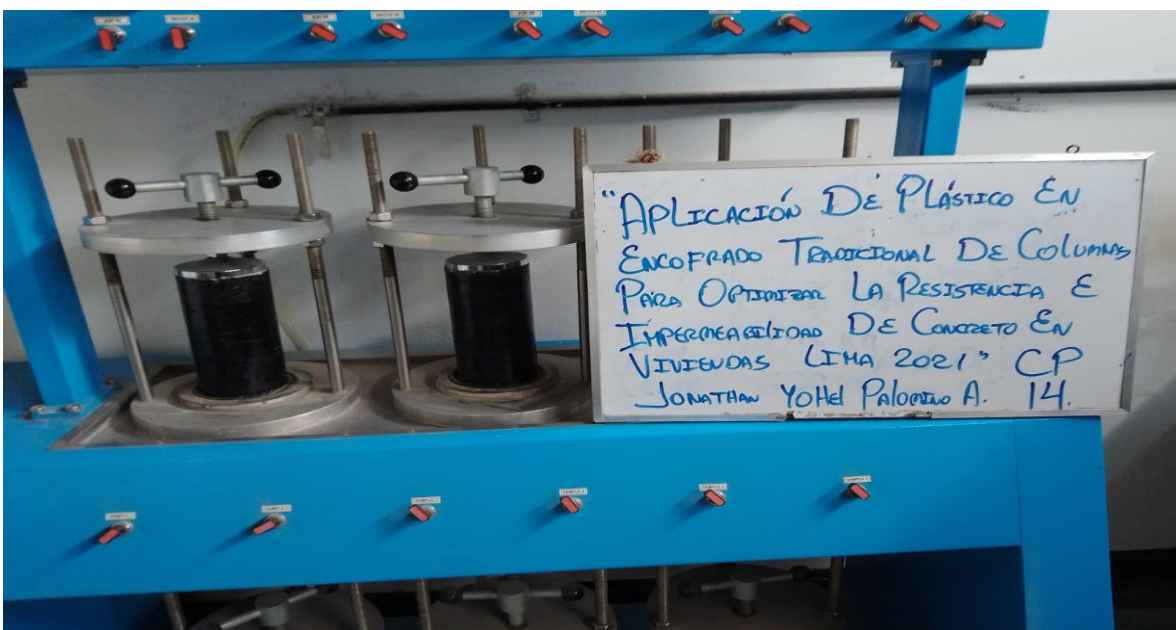 AIR IN
WATER IN
AIR IN
WATER IN
"APLICACIÓN DE PLÁSTICO EN
ENCOFRADO TRADICIONAL DE COLUMNAS
PARA OPTIMIZAR LA RESISTENCIA E
IMPERMEABILIDAD DE CONCRETO EN
VIVIENDAS LIMA 2021" CP
JONATHAN YOHEL PALOMINO A. 14.